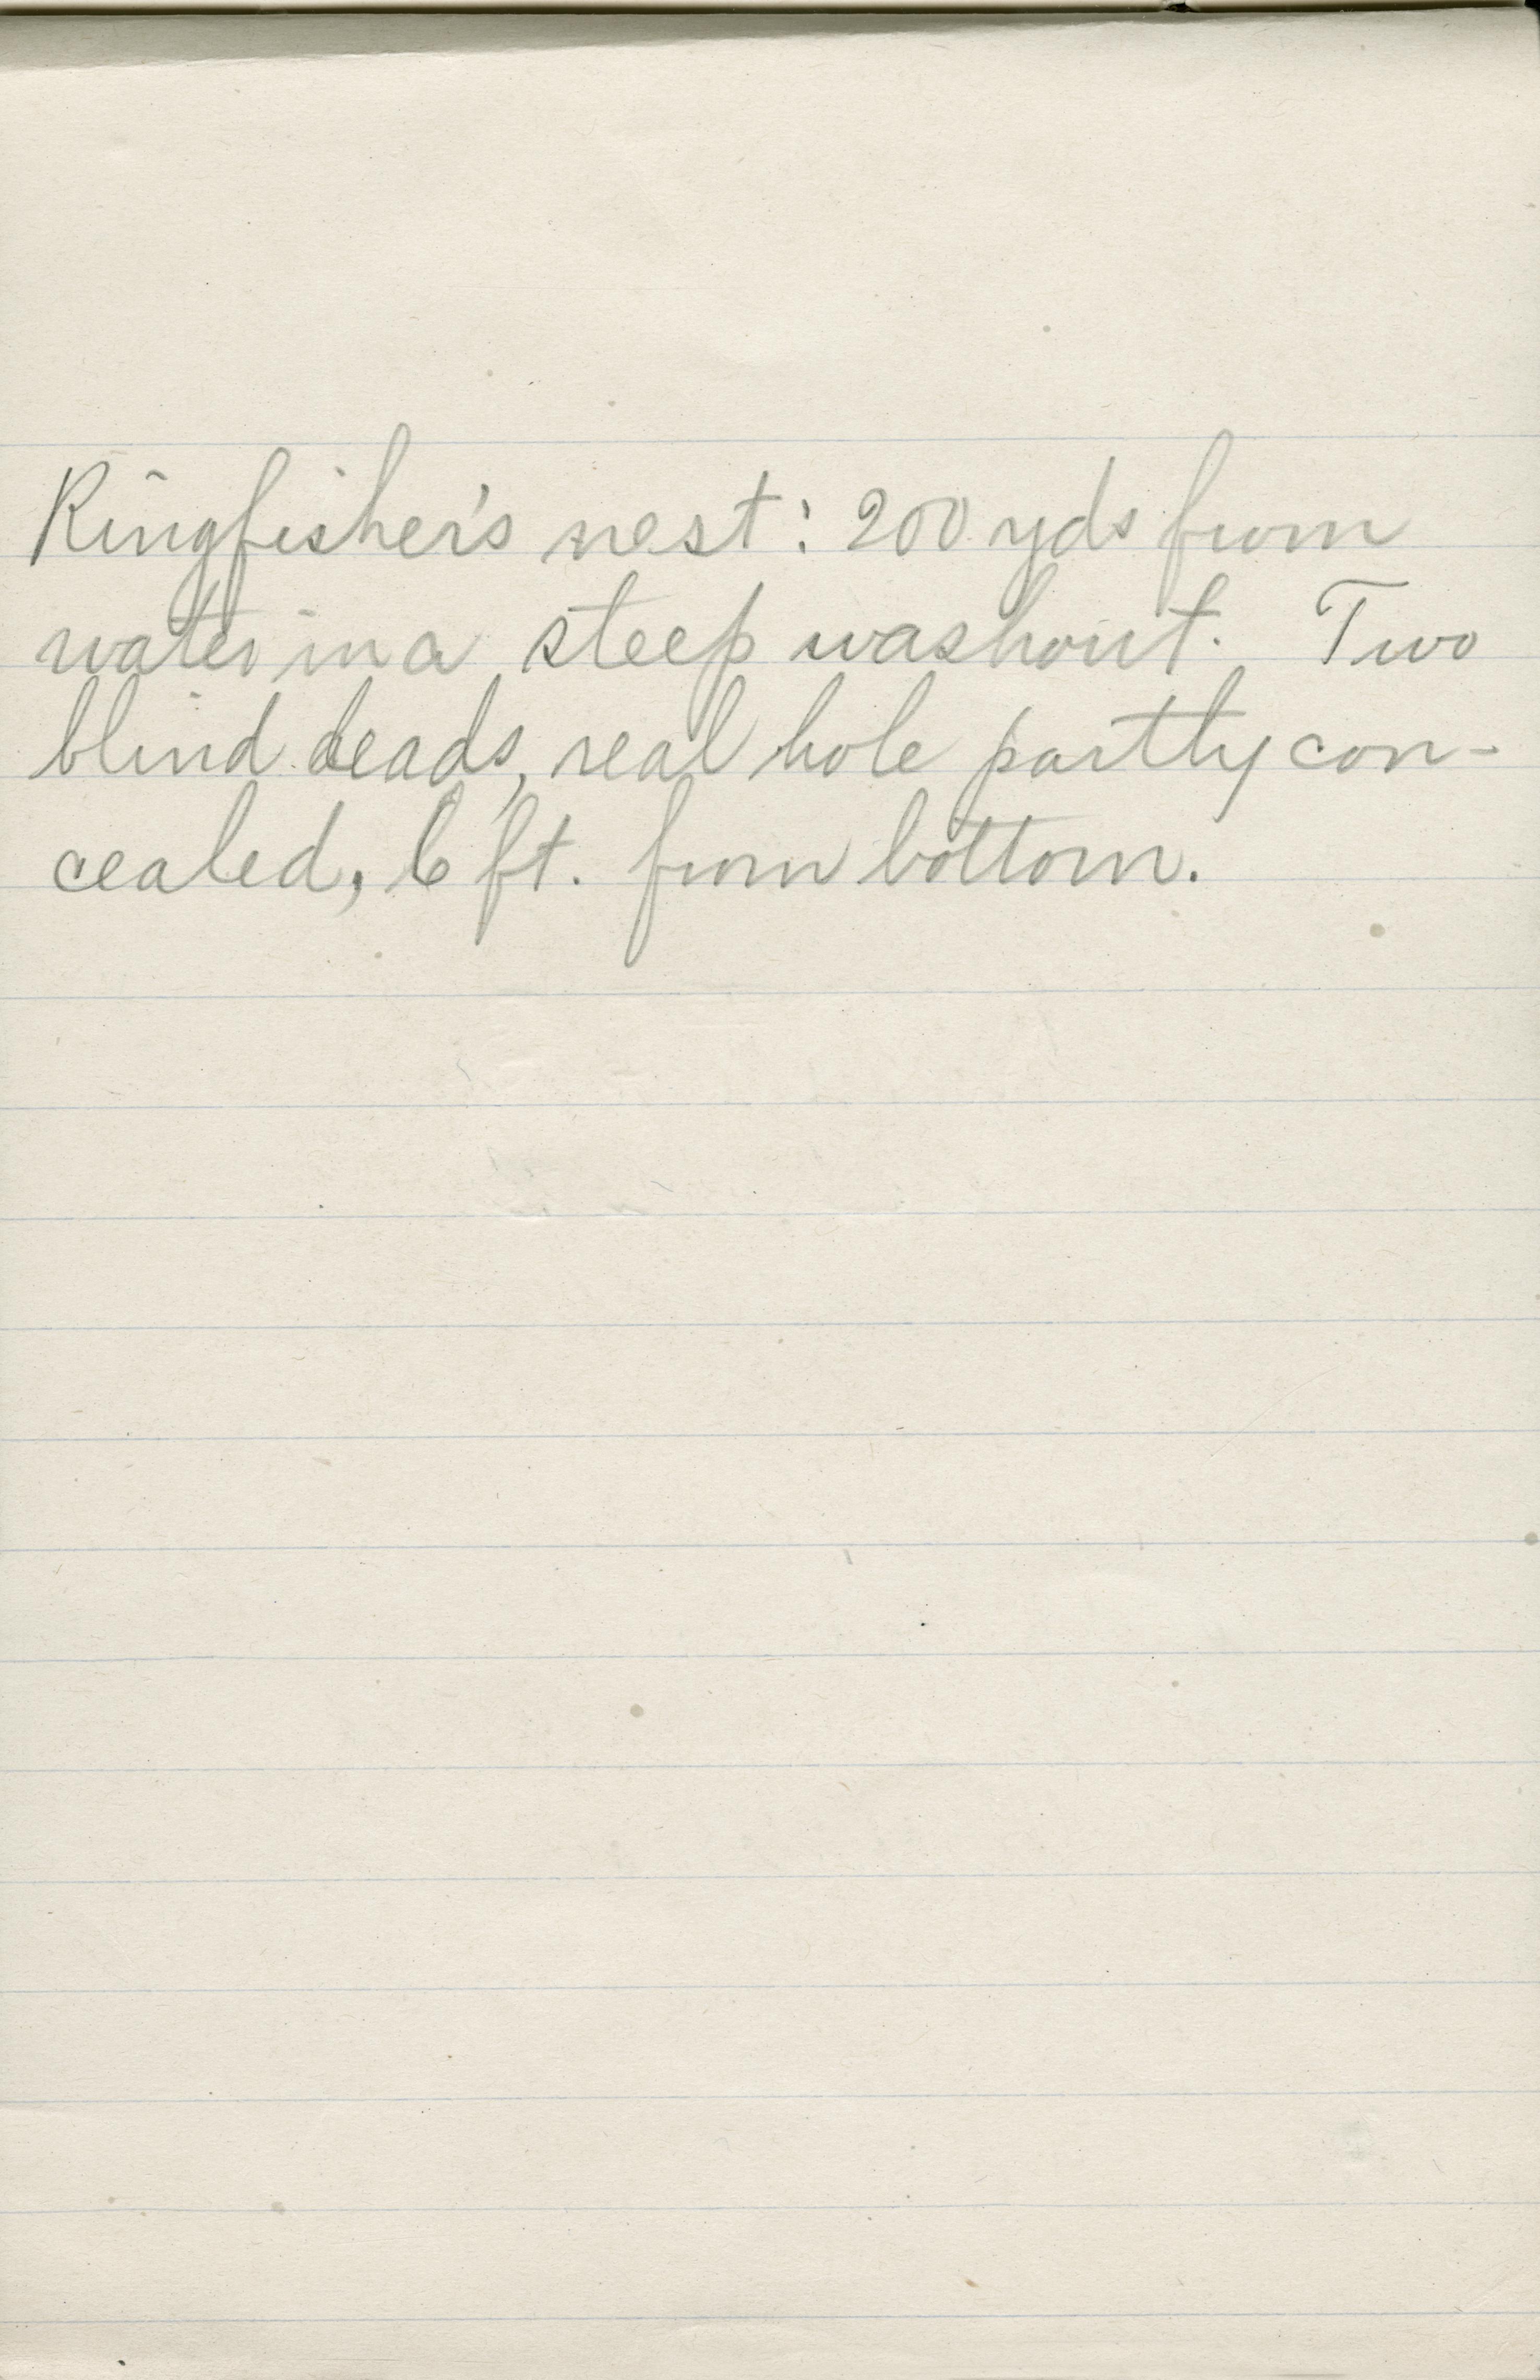 Kingfisher's nest: 200 yds from
water in a steep washout. Two
blind leads, real hole partly con-
cealed, 6 ft. from bottom.